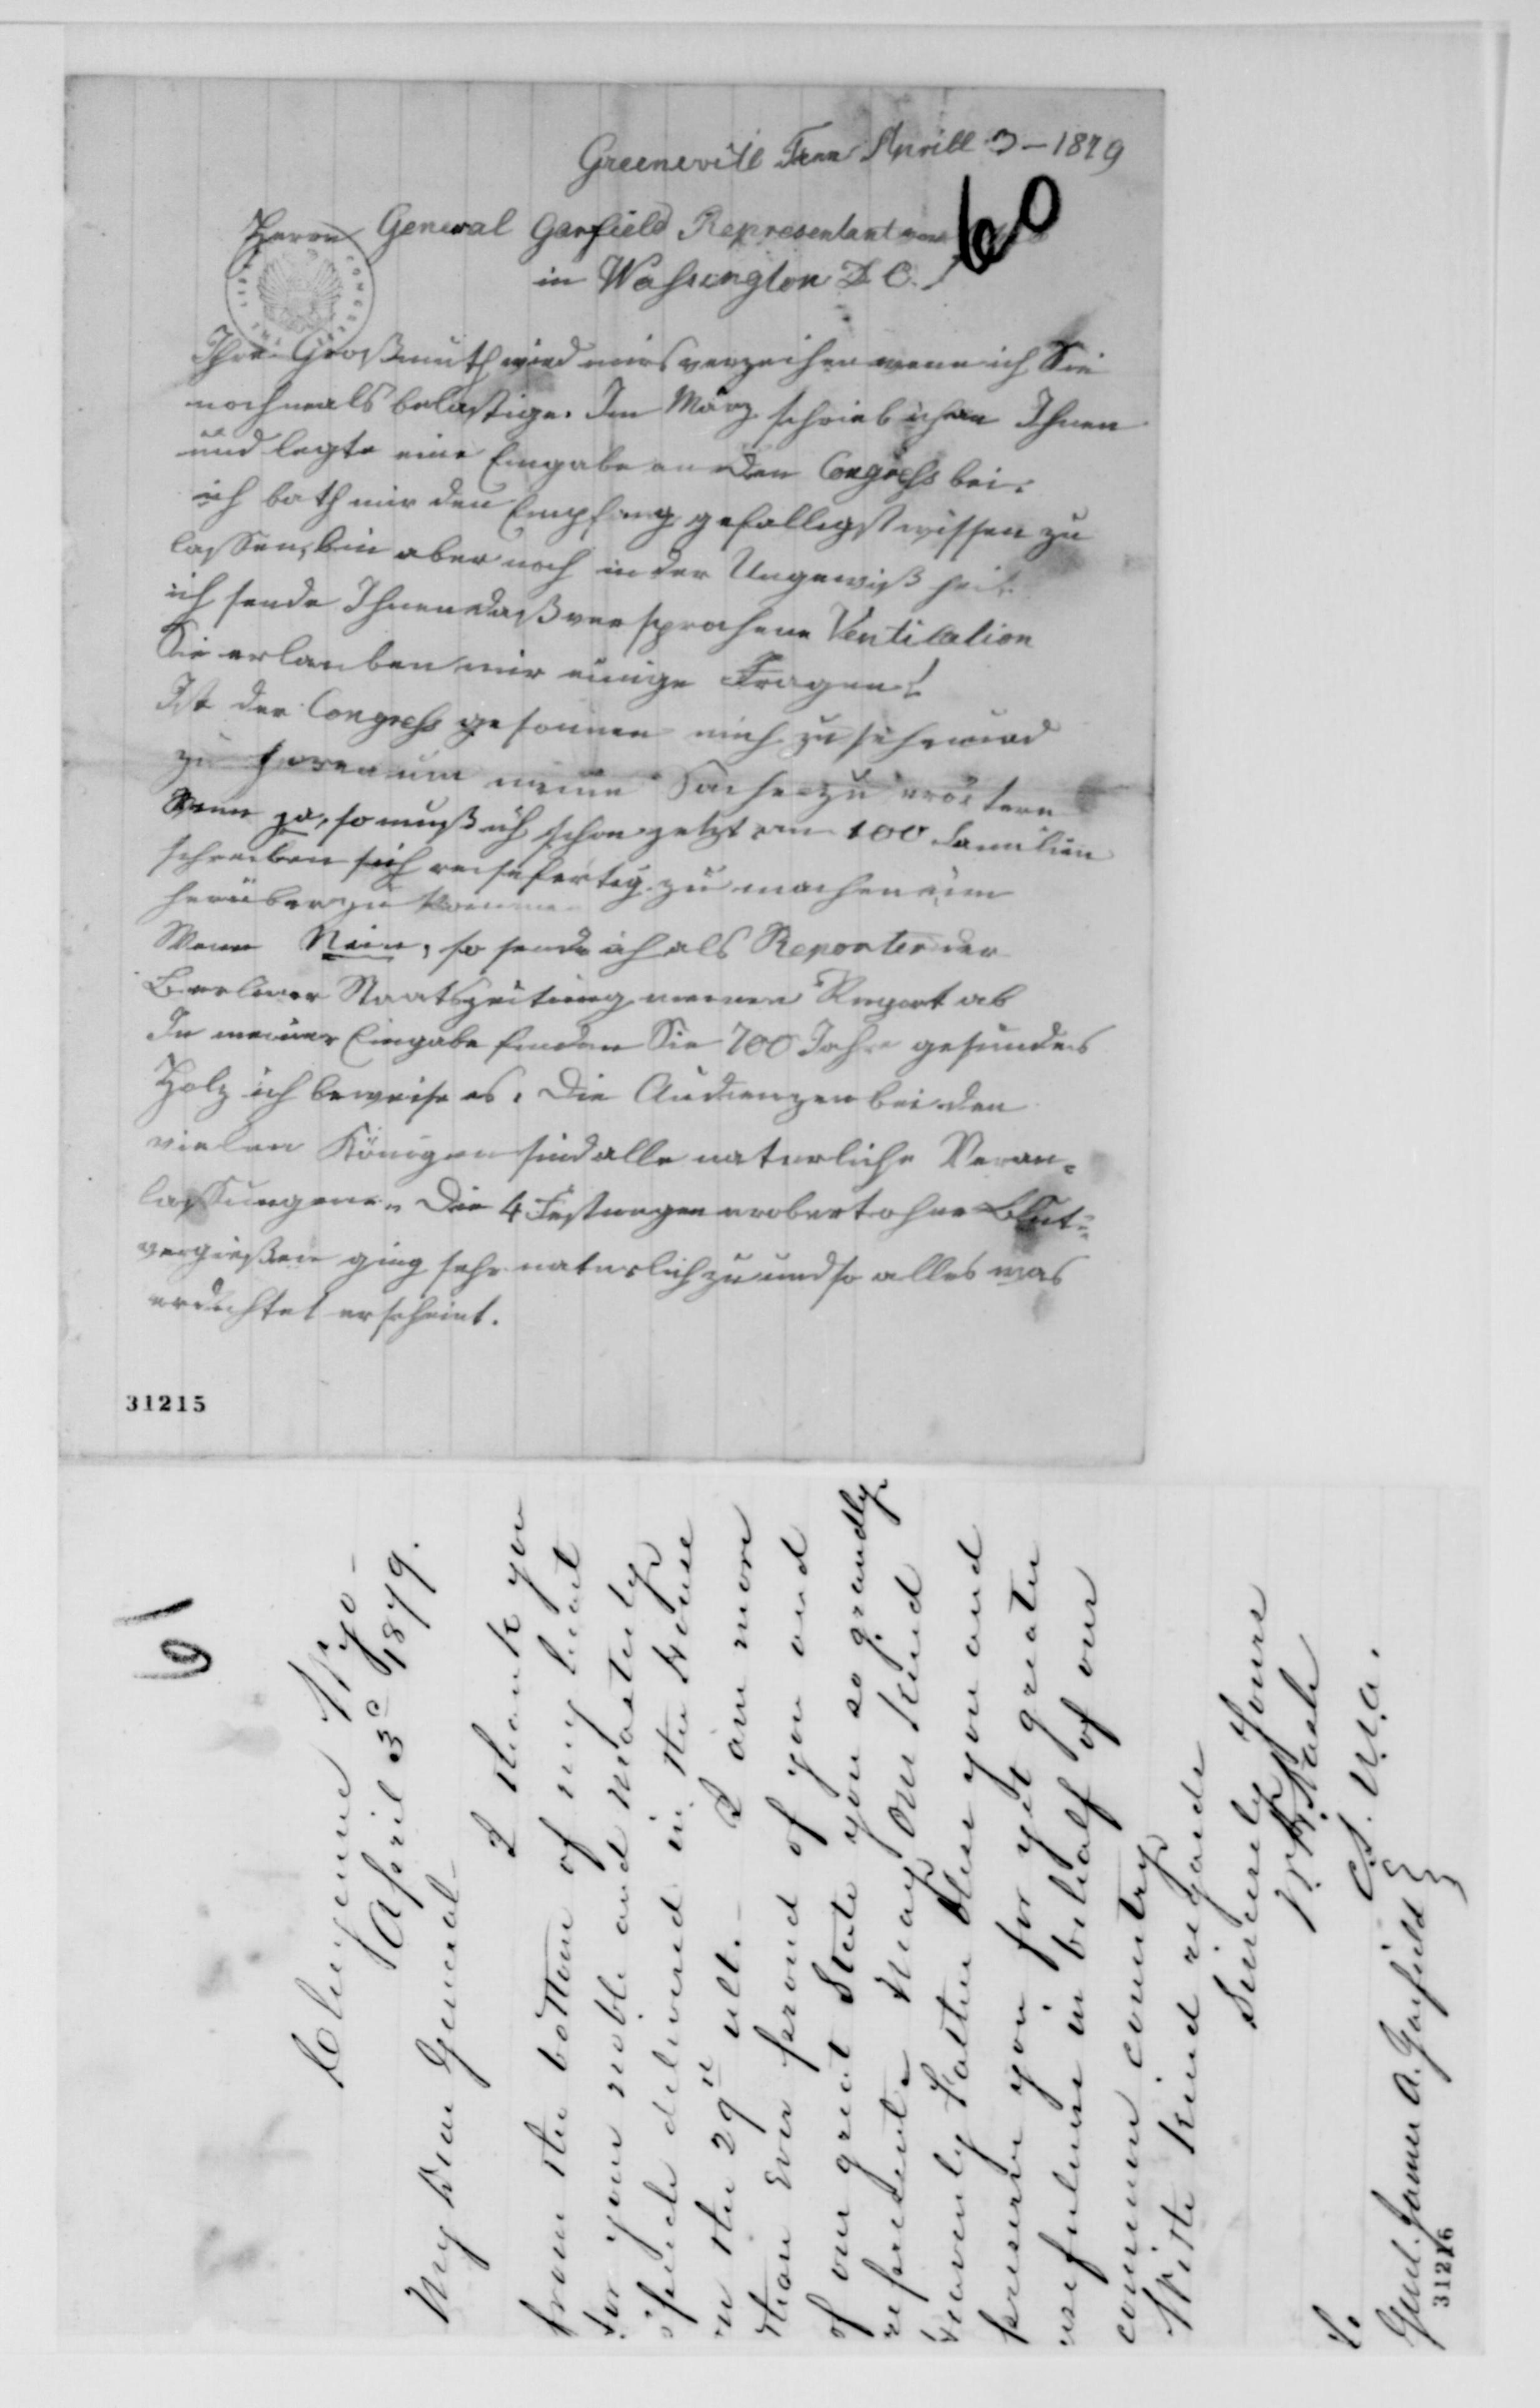 Greenevill Tenn Aprill 3 – 1879
60
Herrn General Garfield Representant
in Wahsington D. C.
Ihre Großmuth wird mirs verzeihen wenn ich Sie
nochmals belastige. Im März schrieb ich an Ihnen
und legte eine Eingabe an den Congress bei.
ich bath mir den Empfang gefalligst wissen zu
lassen, bin aber noch in der Ungewißheit.
ich sende Ihnen daß versprochene Ventilation
Sie erlauben mir einige Fragen!
Ist der Congress gesonnen mich zu sehen und
zu horen um meine Sache zu erörtern
Wenn ja, so muß ich schon jetzt an 100 Familien
schreiben sich reisefertig zu machen um
herüber zu kommen
Wenn Nein, so sende ich als Reporter der
Berliner Staatszeitung meinen Report ab
In meiner Eingabe finden Sie 700 Jahre gesundes
Holz ich beweise es. Die Audienzen bei den
vielen Königen sind alle naturliche Veran-
lassungen. Die 4 Festungen erobert ohne Blut-
vergießen ging sehr naturlich zu und so alles was
erdichtet erscheint.
31215
61
Cheyenne Wyo –
April 3d 1879.
My Dear General –
I thank you
from the bottom of my heart
for your noble and masterly
speech delivered in the House
on the 29th ult. – I am more
than ever proud of you and
of our great State you so grandly
represent. May our kind
Heavenly Father bless you and
preserve you for yet greater
usefulness in behalf of our
common country
With kind regards
Sincerely Yours
U.S.A.
To
Genl. James A. Garfield
31216